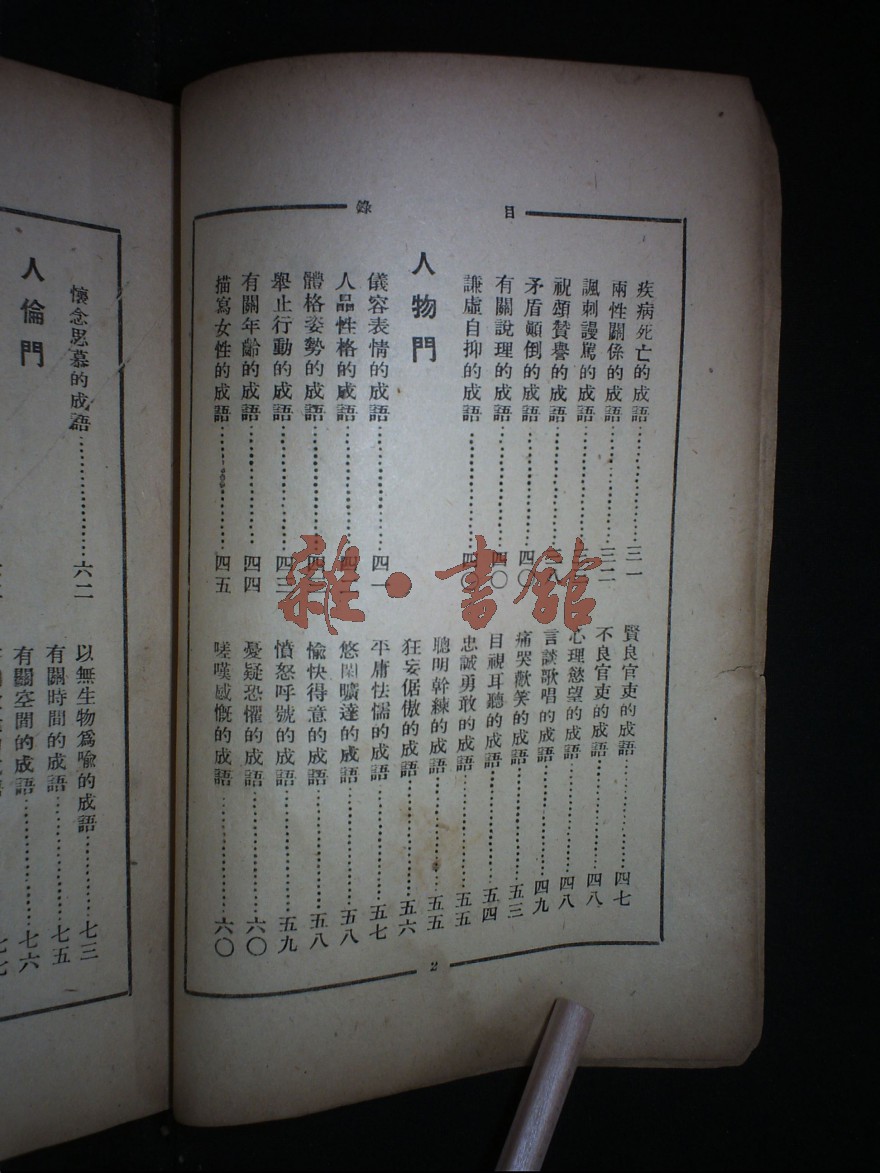 目錄
疾病死亡的成語……三一
兩性關係的成語……三二
諷刺謾罵的成語
祝頌贊譽的成語
矛盾顛倒的成語……四〇
有關說理的成語……四〇
謙虛自抑的成語
人物門
儀容表情的成語……四一
人品性格的成語
體格姿勢的成語
舉止行動的成語……四三
有關年齡的成語……四四
描寫女性的成語……四五
賢良官吏的成語……四七
不良官吏的成語……四八
心理慾望的成語……四八
言談歌唱的成語……四九
痛哭歡笑的成語……五三
目視耳聽的成語……五四
忠誠勇敢的成語……五五
聰明幹練的成語……五五
狂妄倨傲的成語……五六
平庸怯懦的成語……五七
悠閑曠達的成語……五八
愉快得意的成語……五八
憤怒呼號的成語……五九
憂疑恐懼的成語……六〇
嗟嘆感慨的成語……六〇
2
懷念思慕的成語……六二
人倫門
以無生物爲喻的成語……七三
有關時間的成語……七五
有關空間的成語……七六
七七
雜·書館